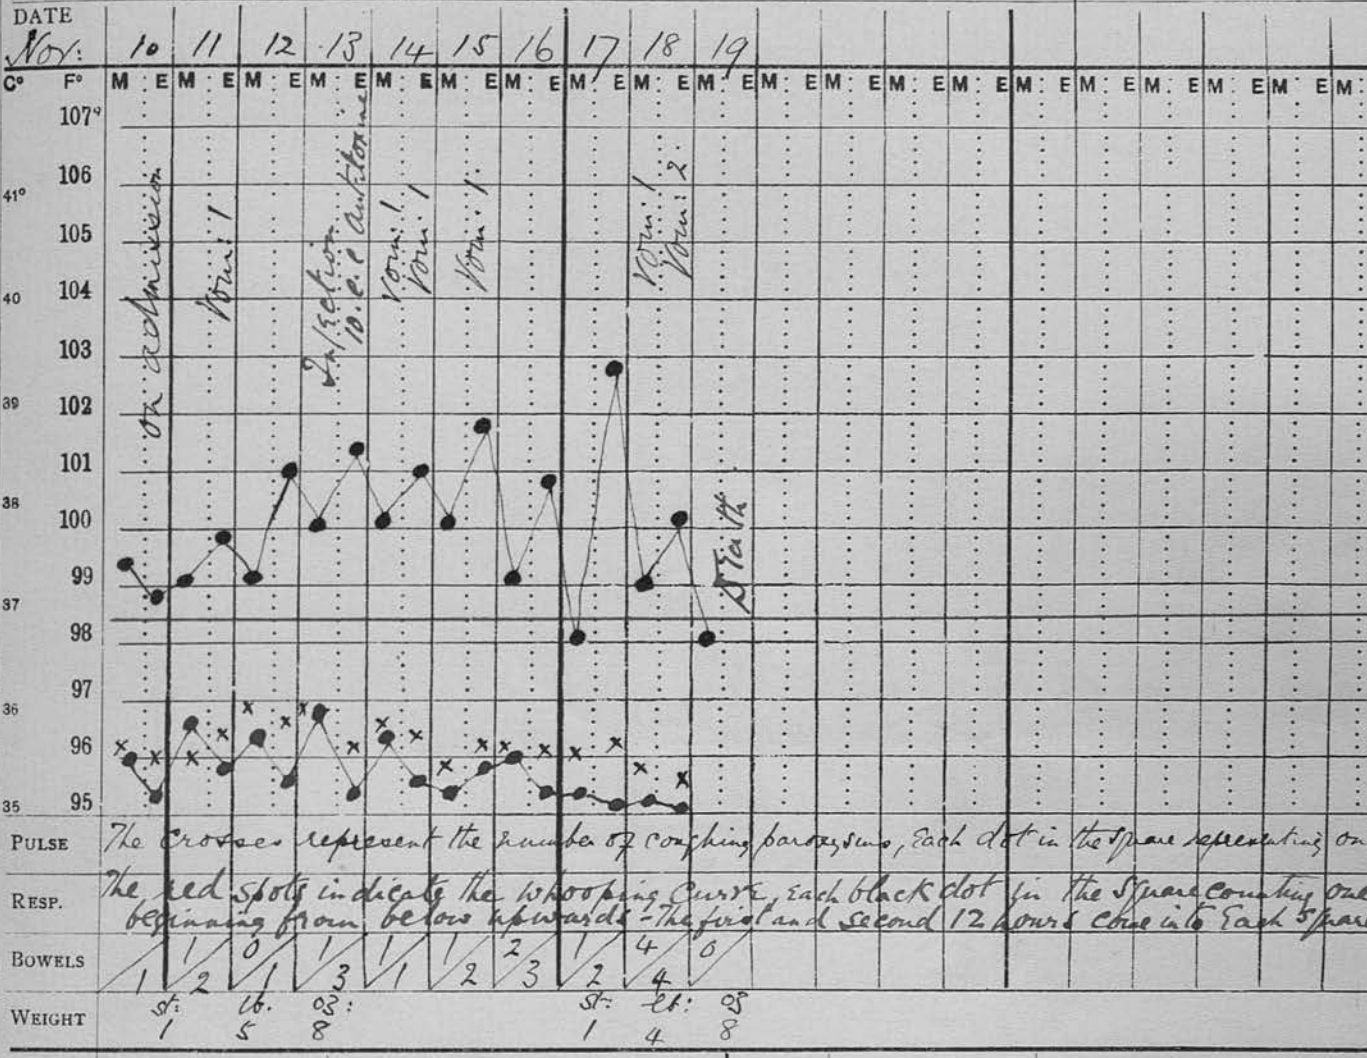 DATE
Nov: 10 11 12 13 14 15 16 17 18 19
C° F° M E M E M E M E M E M E M E M E M E M E M E M E M E M E M E M E M E M E M E M
107°
106
41°
105
40 104
103
39 102
101
38 100
99
37
98
97
36 96
35 95
on admission
Vom: 1
Injection
10. c.c antitoxine
Vom: 1
Vom: 1
Vom: 1
Vom: 1
Vom: 2
Death
PULSE The crosses represent the number of coughing paroxysms, Each dot in the square representing on
RESP. The red spots indicate the whooping curve, Each black dot in the square counting one
beginning from below upwards - The first and second 12 hours come into Each squar
BOWELS 1 0 1 1 1 2 1 4 0
1 2 1 3 1 2 3 2 4
WEIGHT st: lb. oz: st: lb: oz
1 5 8 1 4 8